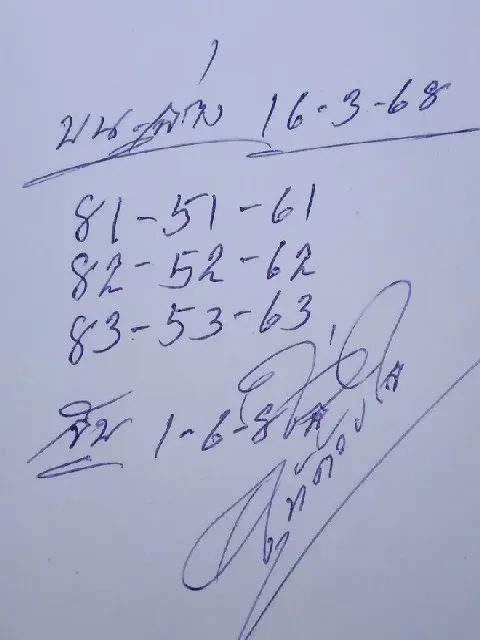 บน-ล่าง 16-3-68
81-51-61
82-52-62
83-53-63
1-6-8